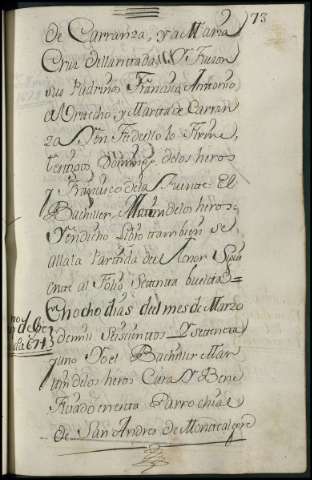 73
de Carranza, y a Maria
Cruz
sus Padrinos Francisco Antonio
y Marita de Carran
za Y en Fe de ello lo firme,
testigos Domingo de los heros
y Francisco de la Puente El
Bachiller Martin de los heros,
Y en dicho Libro tambien se
alla la Partida del tenor Sigui
ente al Folio Setenta buelta
En ocho dias del mes de Marzo
de mil Seiscientos Y setenta
y uno Yo el Bachiller Mar
tin de los heros Cura Y Bene
ficiado en esta Parrochial
de San Andres de